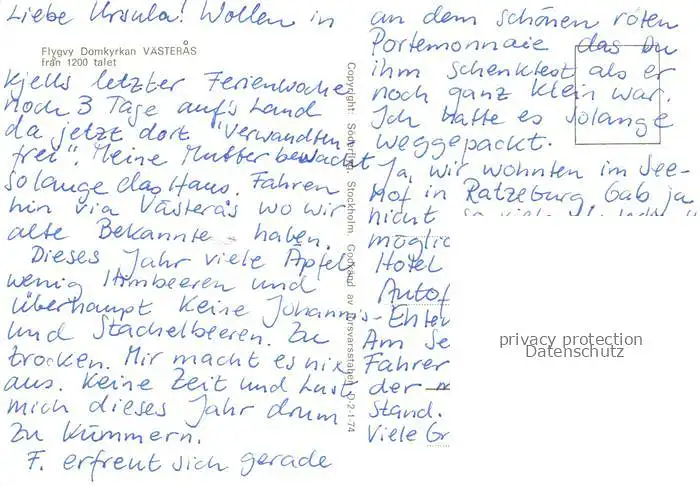 Liebe Ursula! Wollen in
Flygvy Domkyrkan VÄSTERÅS
från 1200 talet
Kjells letzter Ferienwoche
noch 3 Tage auf's Land
da jetzt dort "Verwandten
frei". Meine Mutter bewacht
solange das Haus. Fahren
hin via Västerås wo wir
alte Bekannte haben.
Dieses Jahr viele Äpfel
wenig Himbeeren und
überhaupt keine Johannis-
und Stachelbeeren. Zu
trocken. Mir macht es nix
aus. Keine Zeit und Lust
mich dieses Jahr drum
zu kümmern.
F. erfreut sich gerade
Copyright: Söderlind, Stockholm. Godkänd av Försvarsstaben D-2-1-74
an dem schönen roten
Portemonnaie das Du
ihm schenktest als er
noch ganz klein war.
Ich hatte es solange
weggepackt.
Ja, wir wohnten im See-
hof in Ratzeburg. Gab ja
nicht so viele
möglic
Hotel
Autof
Enten
Am Se
Fahrer
der
Stand.
Viele Gr
privacy protection
Datenschutz